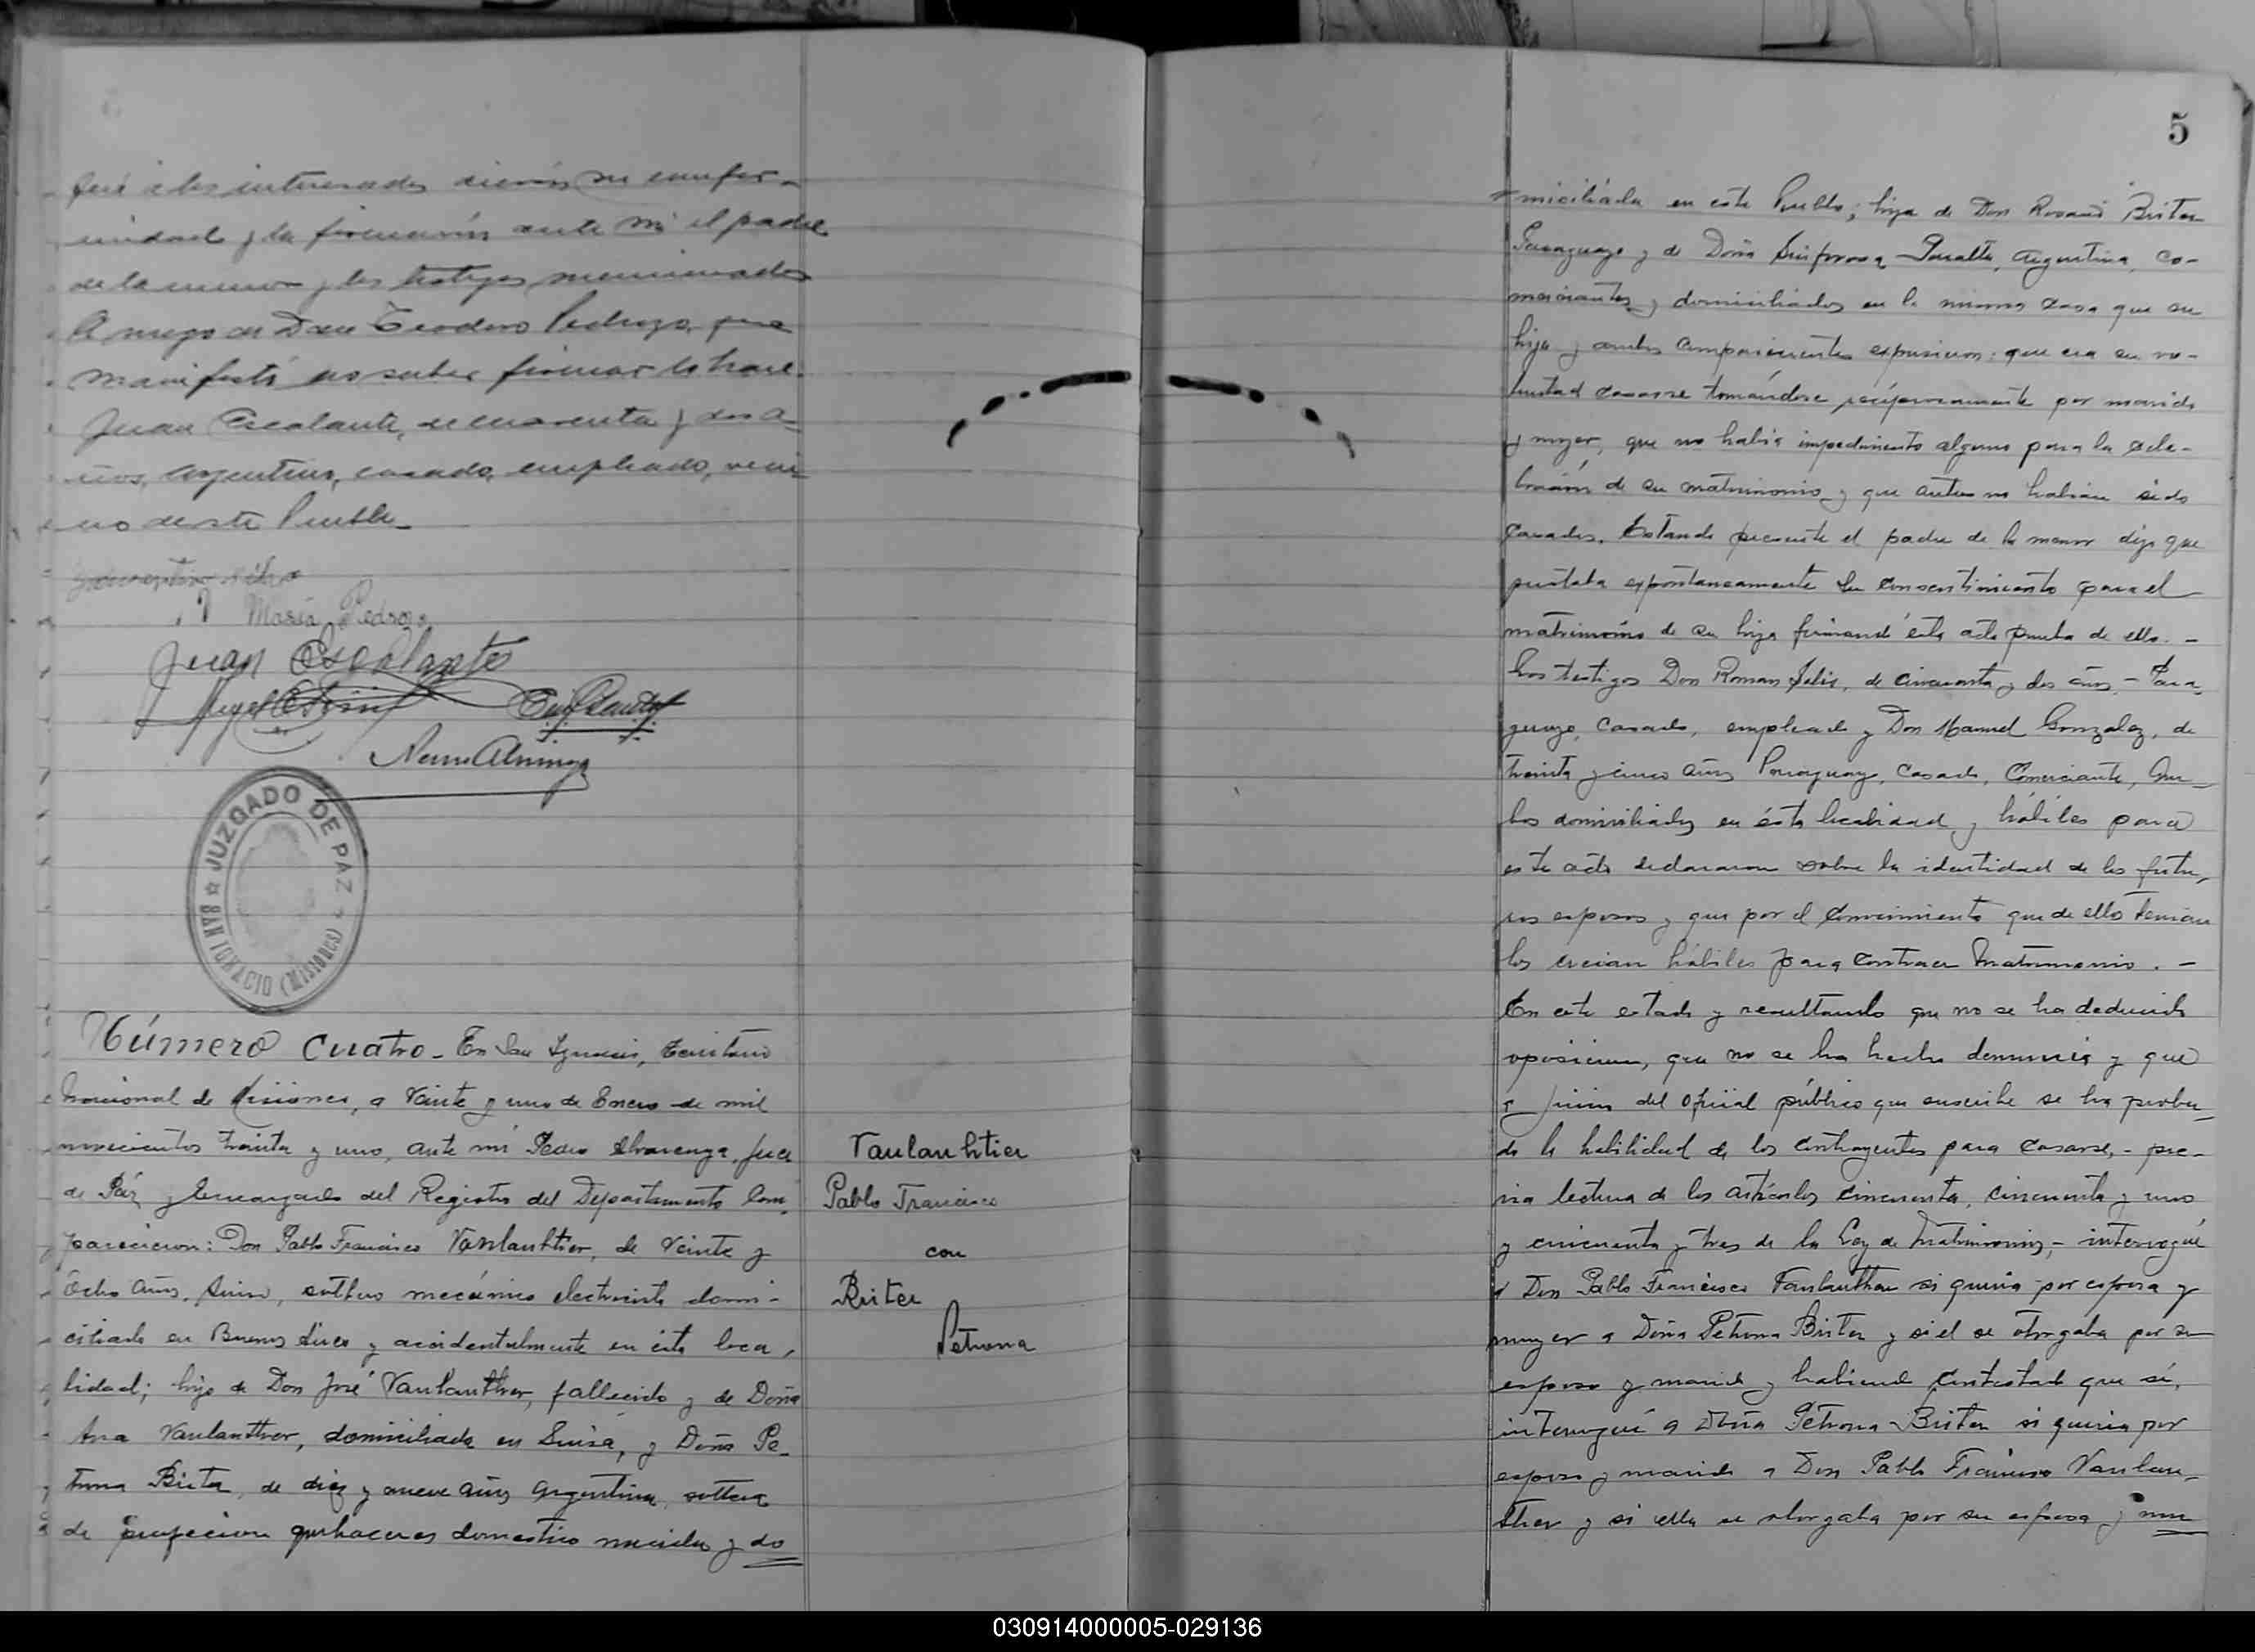 fué a los interesados dieron su confor-
midad y la firmaron ante mí el padre
de la menor y los testigos mencionados
A ruego de Don Teodoro Pedrozo que
manifestó no saber firmar lo hace
Juan Escalante, de cuarenta y dos a-
ños, argentino, casado, empleado, veci-
no de este Pueblo
María Pedrozo
Juan Escalante
JUZGADO DE PAZ
SAN IGNACIO (MISIONES)
Número Cuatro. En San Ignacio, Territorio
Nacional de Misiones, a veinte y uno de Enero de mil
novecientos treinta y uno, ante mí Alvarenga, Juez
de Paz y Encargado del Registro del Departamento Com-
parecieron: Don Pablo Francisco Vanlanthier, de veinte y
ocho años, Suizo, soltero mecánico electricista domi-
ciliado en Buenos Aires y accidentalmente en esta loca-
lidad; hijo de Don José Vanlanther, fallecido y de Doña
Ana Vanlanther, domiciliada en Suiza, y Doña Pe-
trona Britez, de diez y nueve años argentina, soltera
de profecion quehaceres domestico nacida y do
Vanlanhtier
Pablo Francisco
con
Britez
Petrona
5
miciliada en este Pueblo; hija de Don Britez
Paraguayo y de Doña Sinforosa Peralta, argentina, co-
merciantes y domiciliados en la misma casa que su
hija y ambos comparecientes expusieron: que era su vo-
luntad casarse tomándose recíprocamente por marido
y mujer, que no había impedimento alguno para la cele-
bración de su matrimonio y que antes no habian sido
casados. Estando presente el padre de la menor dijo que
prestaba espontaneamente su consentimiento para el
matrimonio de su hija firmando esta acta prueba de ello. -
Los testigos Don Roman, de cincuenta y dos años - Para-
guayo, casado, empleado y Don Manuel Gonzalez, de
treinta y cinco años Paraguayo, casado, Comerciante, Am-
bos domiciliados en ésta localidad y hábiles para
este acto declararon sobre la identidad de los futu-
ros esposos y que por el conocimiento que de ellos tenian
los creian hábiles para contraer Matrimonio. -
En este estado y resultando que no se ha deducido
oposicion, que no se ha hecho denuncia y que
a juicio del oficial público que suscribe se ha proba-
do la habilidad de los contrayentes para casarse, - pre-
via lectura de los artículos cincuenta, cincuenta y uno
y cincuenta y tres de la Ley de Matrimonio, - interrogué
a Don Pablo Francisco Vanlanther si queria por esposa y
muger a Doña Petrona Britez y si el se otorgaba por su
esposo y marido y habiendo contestado que sí,
interrogué a Doña Petrona Britez si queria por
esposo y marido a Don Pablo Francisco Vanlan-
ther y si ella se otorgaba por su esposa y mu
030914000005-029136